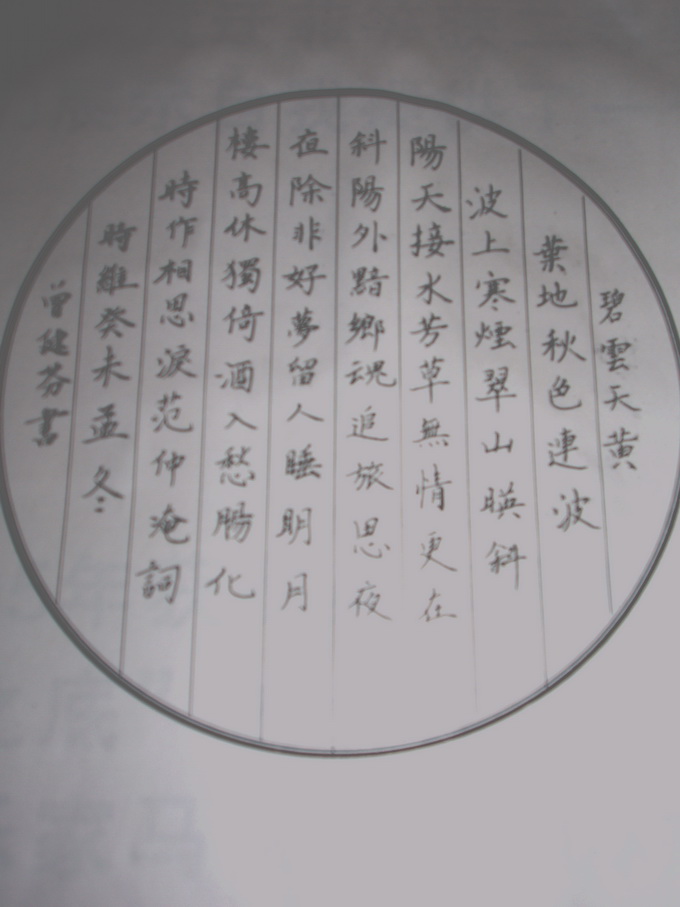 碧雲天黄
葉地秋色連波
波上寒煙翠山暎斜
陽天接水芳草無情更在
斜陽外黯鄉魂追旅思夜
亱除非好夢留人睡明月
樓高休獨倚酒入愁腸化
時作相思淚范仲淹詞
時維癸未孟冬
曾健芬書